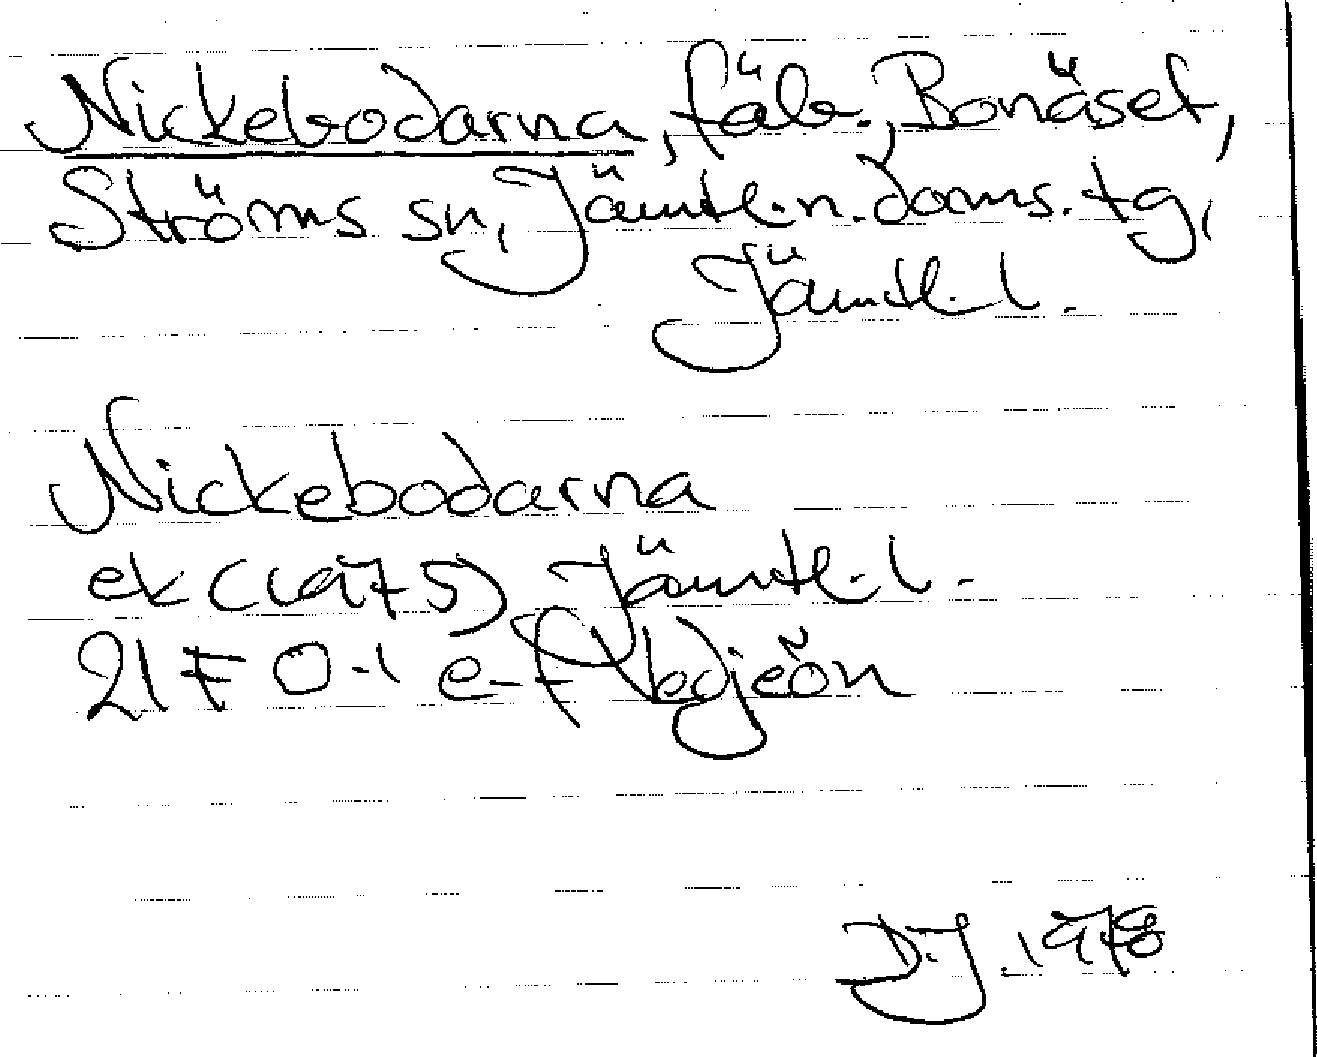 Nickebodarna, fäb., Bonäset,
Ströms sn, Jämtl. n. doms. tg,
Jämtl. l.
Nickebodarna
ek (1975) Jämtl. l.
21 F 0-1 e-f
D.J. 1978